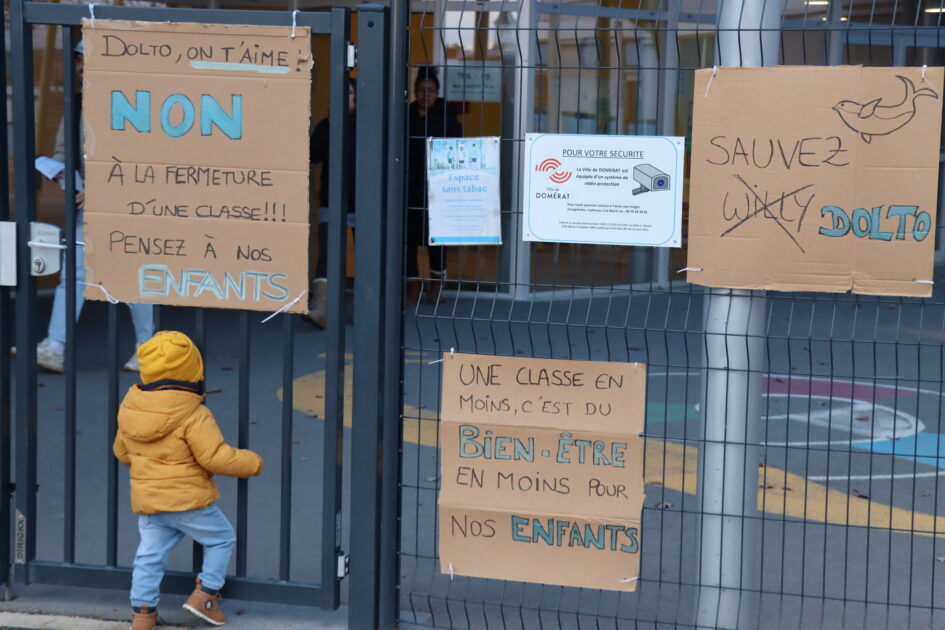 DOLTO, ON T'AIME !
NON
À LA FERMETURE
D'UNE CLASSE!!!
PENSEZ À NOS
ENFANTS
Espace
sans tabac
POUR VOTRE SECURITE
La Ville de DOMERAT est
équipée d'un système de
vidéo-protection
Ville de
DOMÉRAT
SAUVEZ
WILLY DOLTO
UNE CLASSE EN
MOINS, C'EST DU
BIEN-ÊTRE
EN MOINS POUR
NOS ENFANTS
DIRICKX